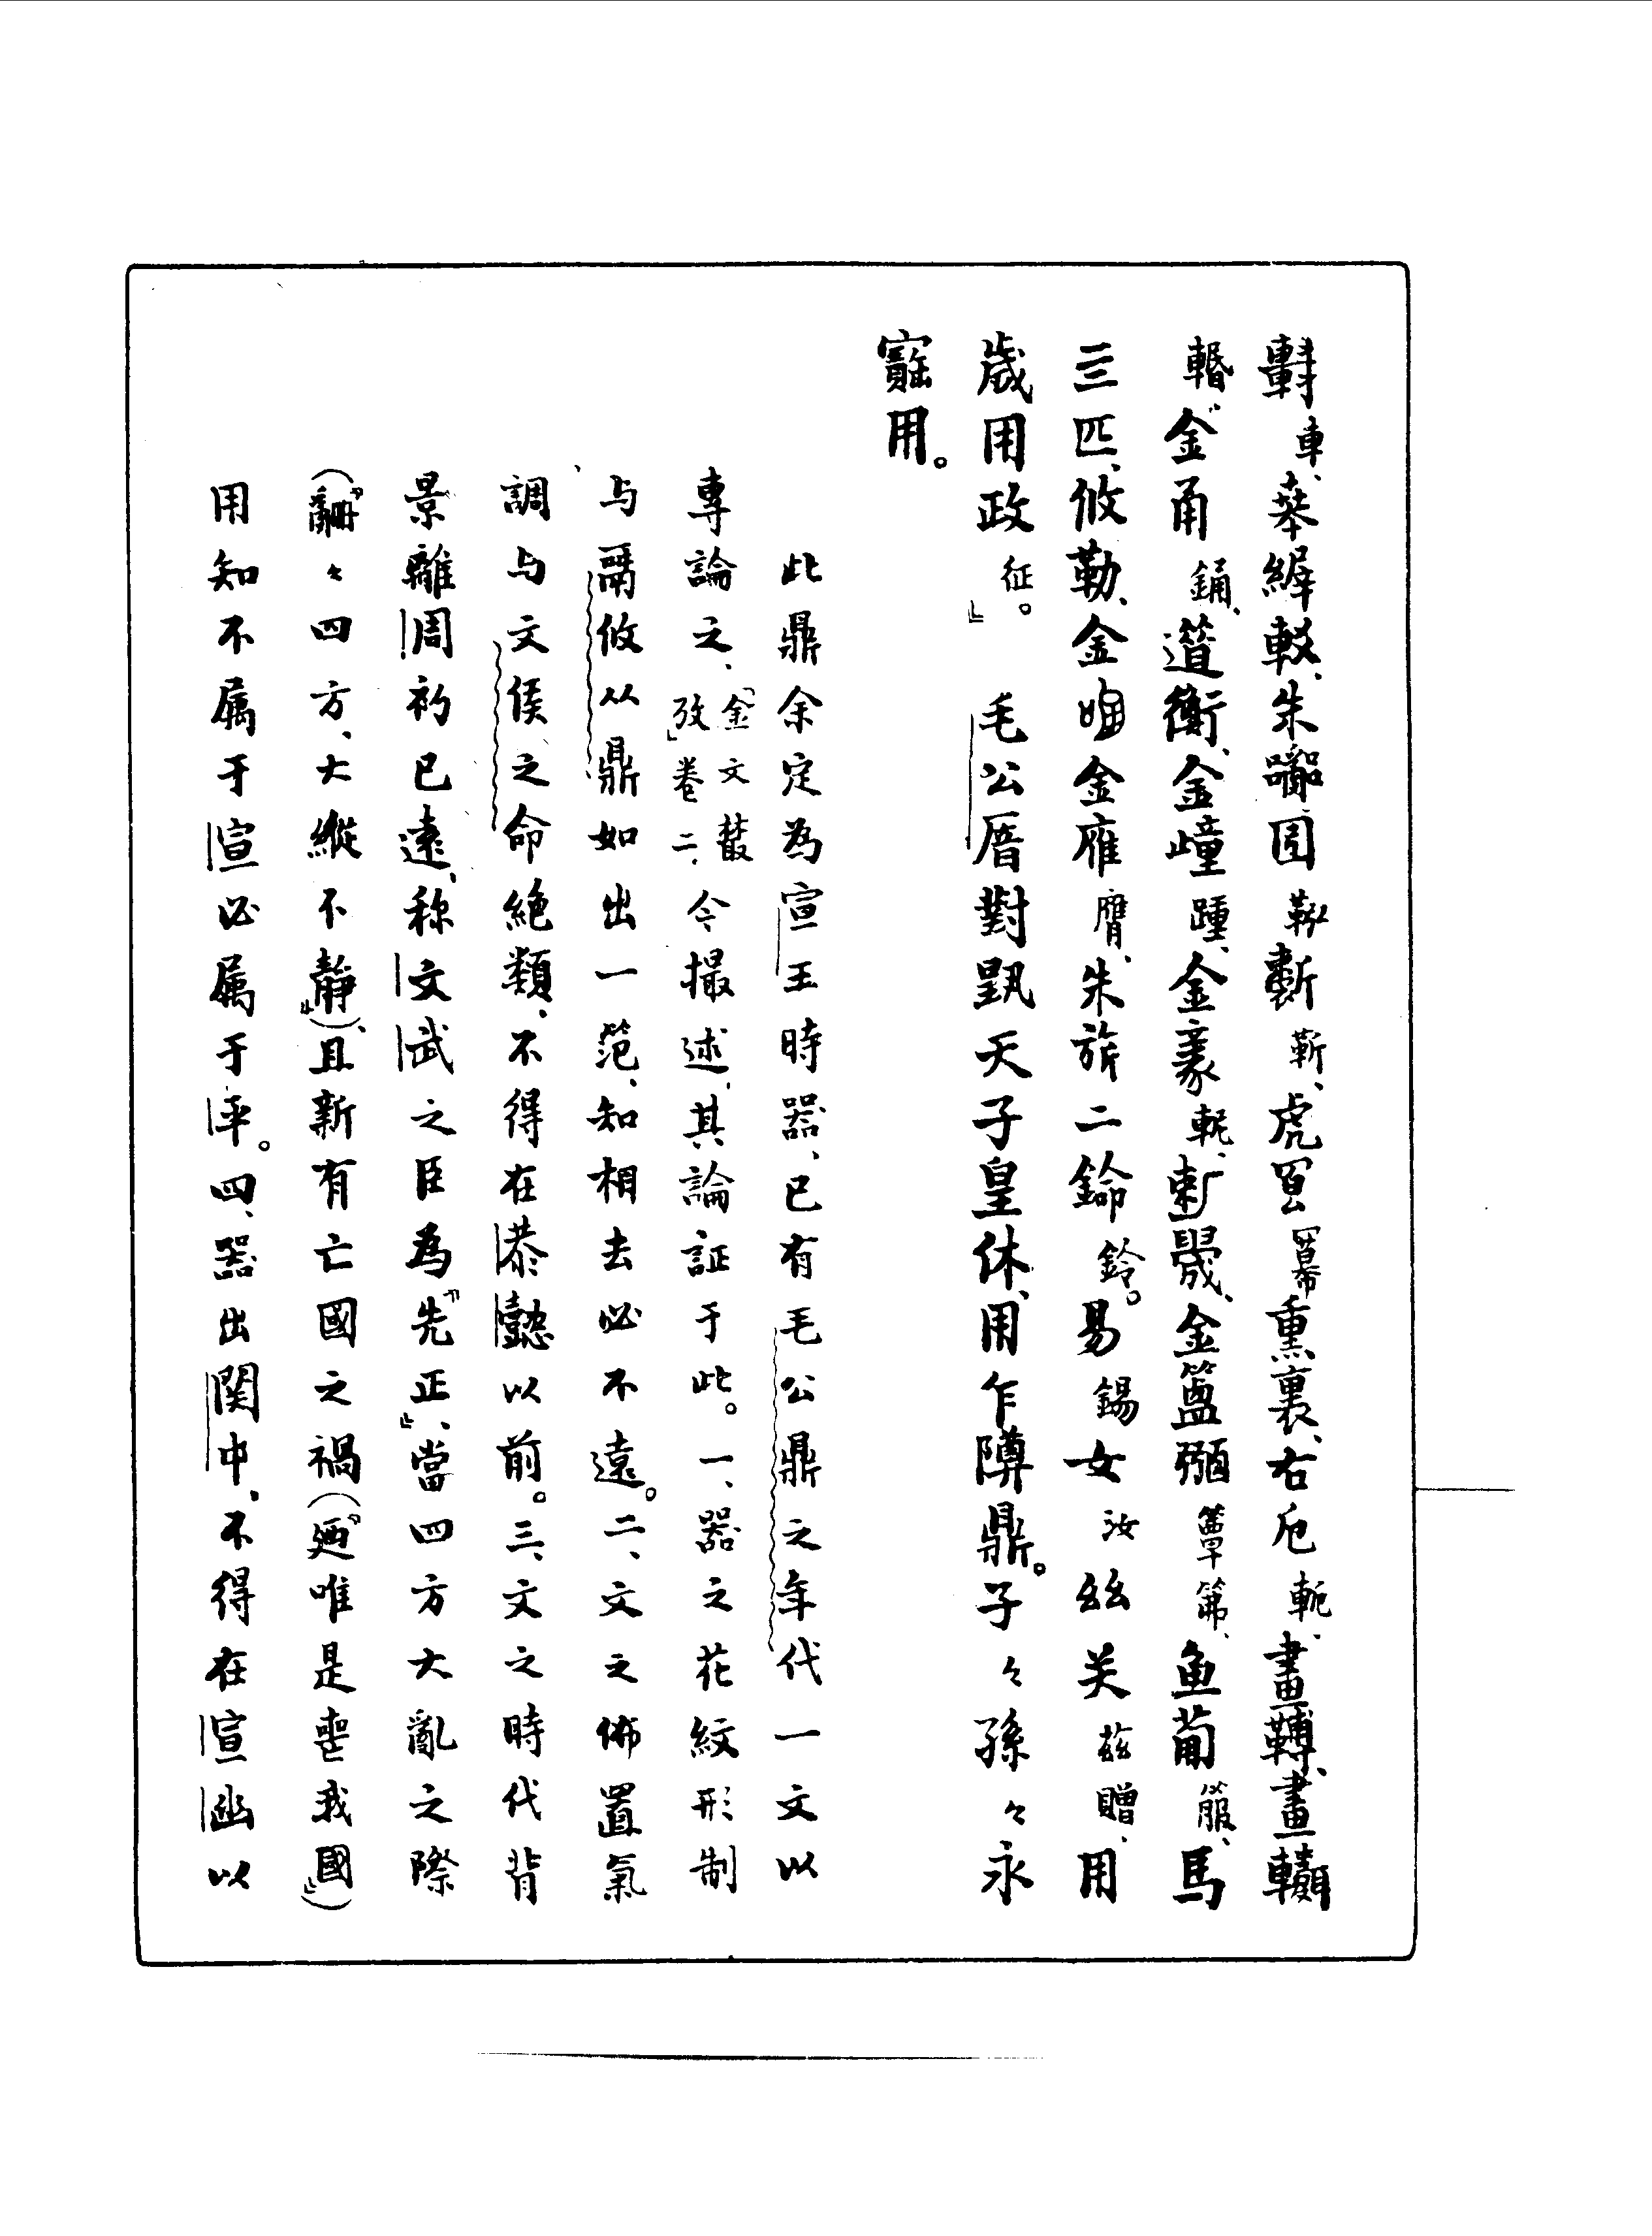 車、𠦪縟較、朱𩏑𠚤靳、虎冟幎熏裏、右厄軛、畫𩌏、畫𨋥、
金甬鋪、衡、金踵、金豪軛、金簟弼簟笰、魚葡箙、馬
亖匹、攸勒、金金雁膺、朱旂二鈴。易錫女汝茲贈、用
歲用政征。』毛公厝對揚天子皇休、用乍鼎。子々孫々永
寶用。
此鼎余定為宣王時器、已有毛公鼎之年代一文以
專論之、「金文叢攷」卷二、今撮述其論証于此。一、器之花紋形制
与鬲攸从鼎如出一范、知相去必不遠。二、文之佈置氣
調与文侯之命絕類、不得在恭懿以前。三、文之時代背
景離周初已遠、称文武之臣為『先正』、當四方大亂之際
(『𤔲々四方、大縱不靜』)、且新有亡國之禍(『廼唯是喪我國』)
用知不属于宣必属于平。四、器出関中、不得在宣幽以